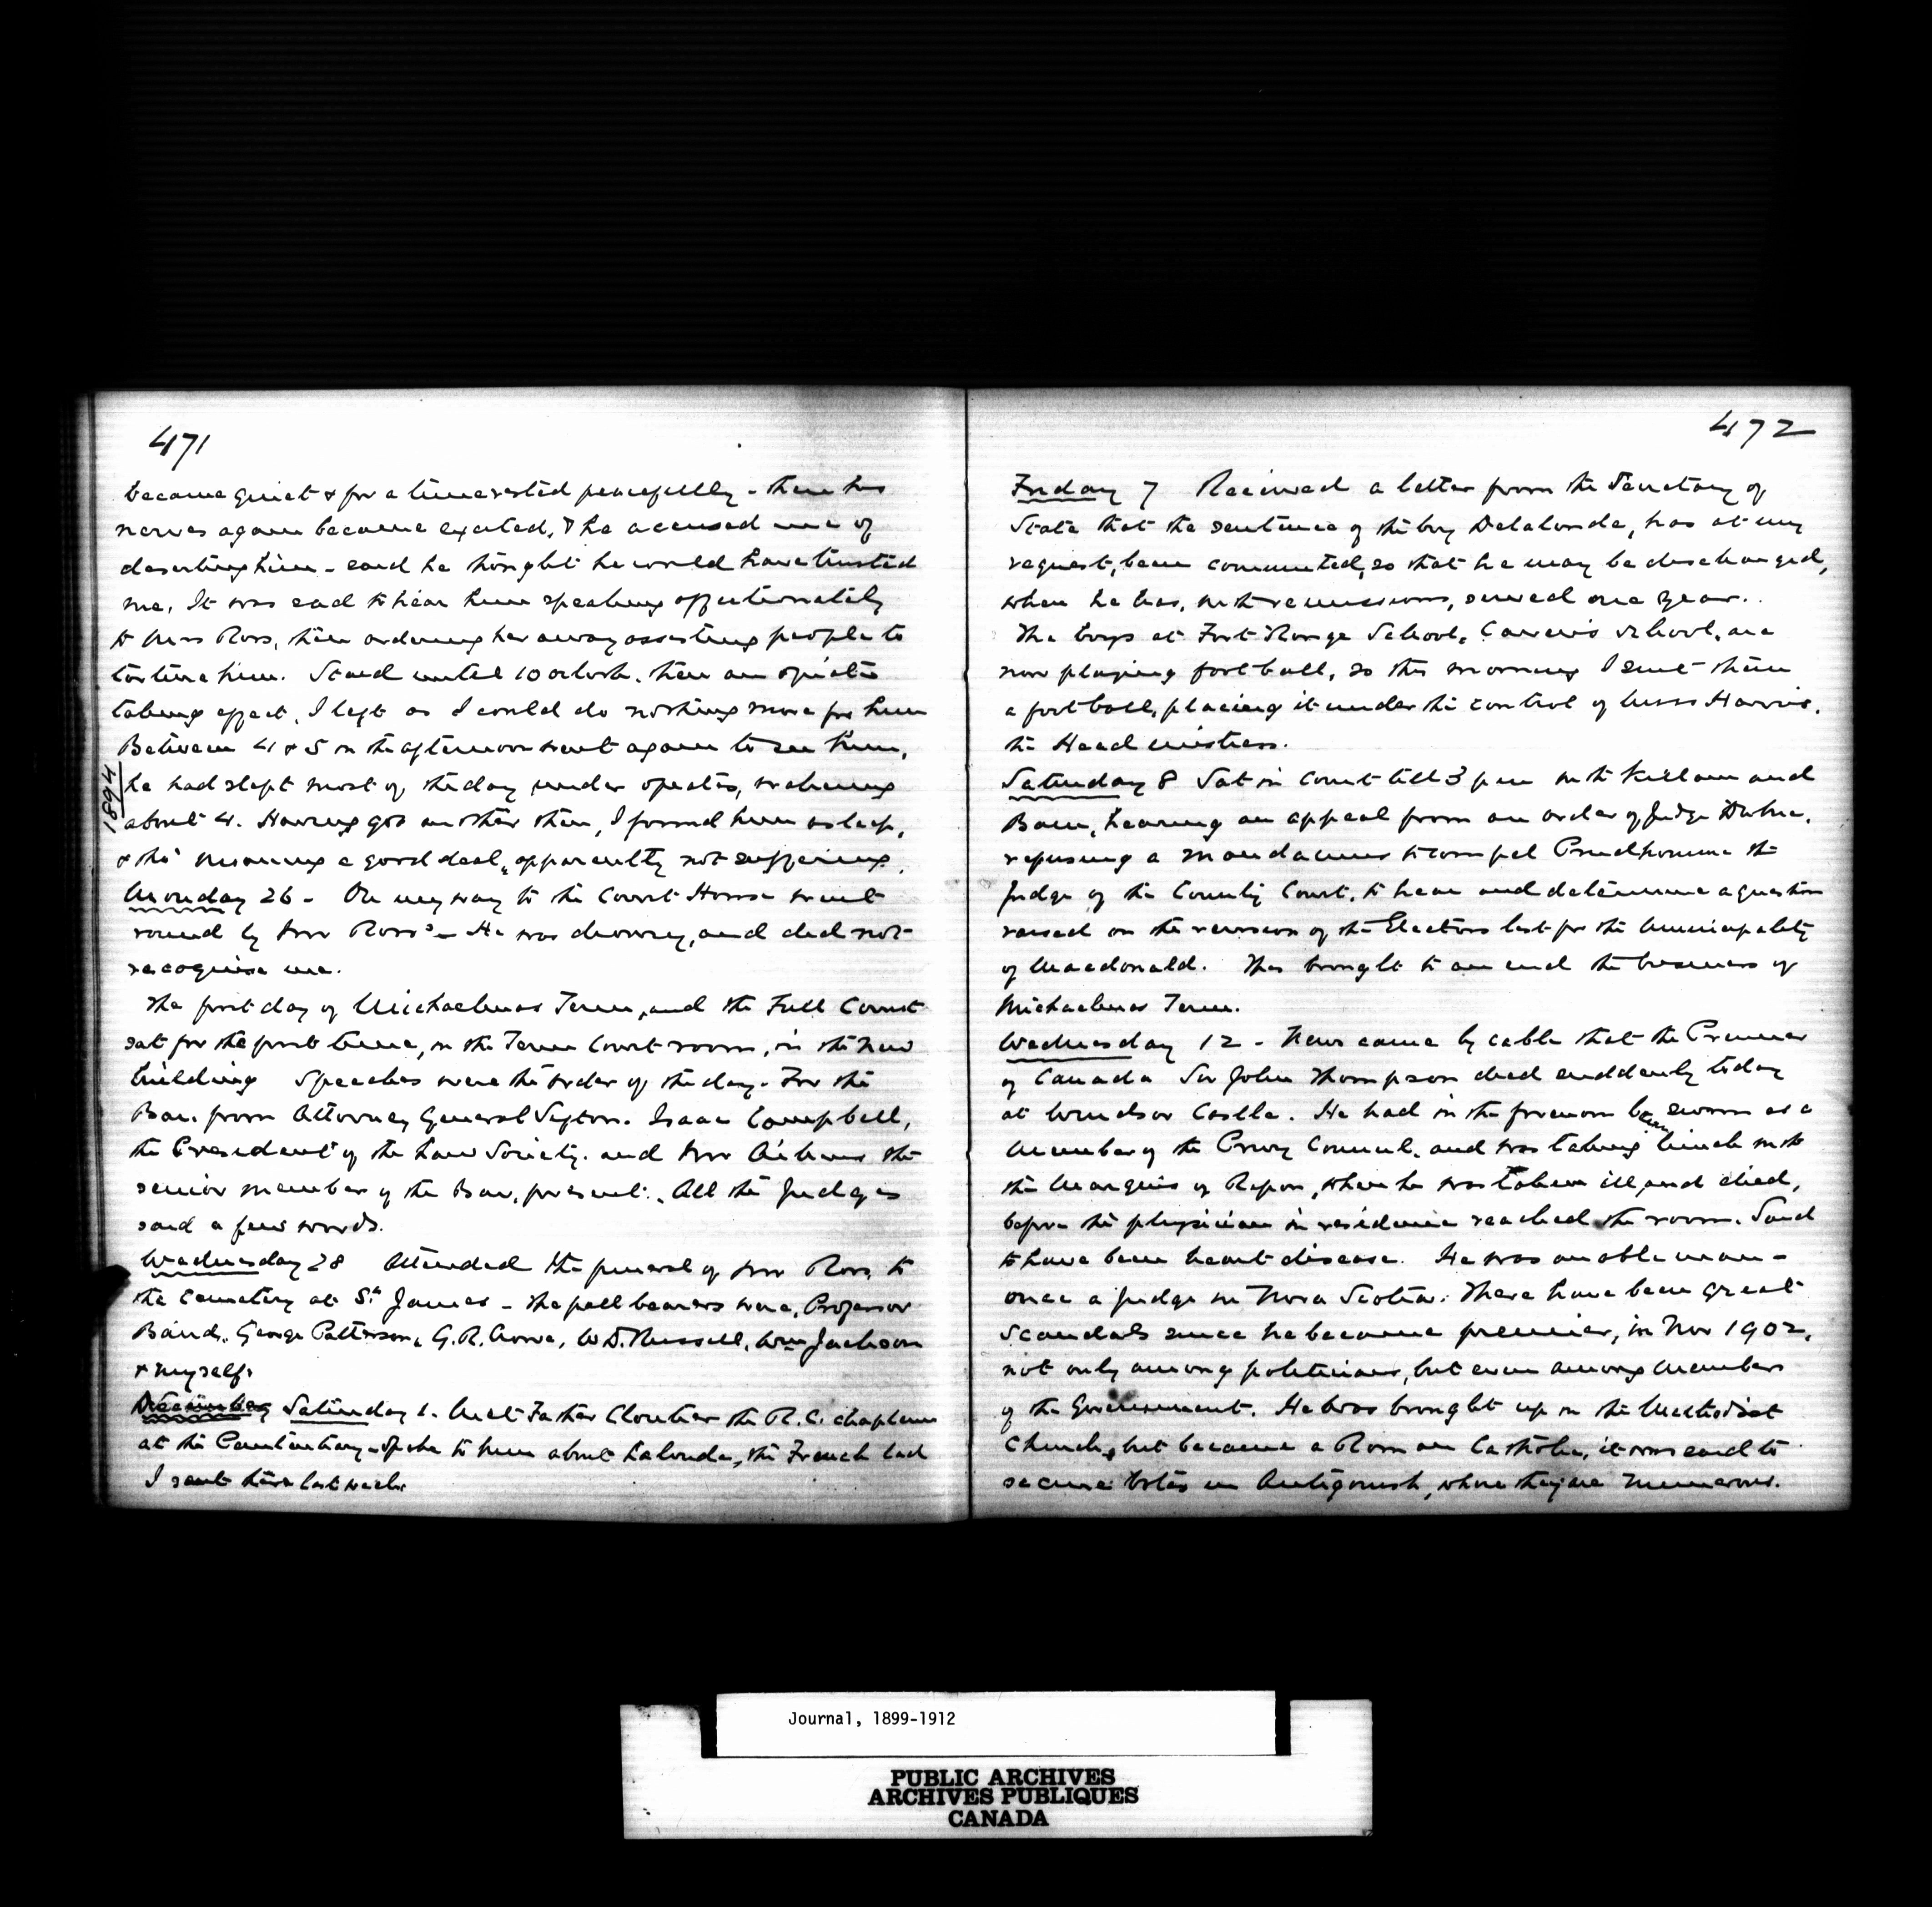 471
became quiet & for a time rested peacefully - then his
nerves again became excited, & he accused me of
deserting him - said he thought he could have trusted
me. It was sad to hear him speaking affectionately
to Mrs Ross, then ordering her away asserting people to
torture him. Staid until 10 oclock, then an opiate
taking effect, I left as I could do nothing more for him
Between 4 & 5 in the afternoon went again to see him,
he had slept most of the day under opiates, waking
about 4. Having got another then, I found him asleep,
& tho' moaning a good deal, apparently not suffering.
1894
Monday 26 - On my way to the Court House went
round by Mr Ross's - He was drowsy, and did not
recognise me.
The first day of Michaelmas Term, and the Full Court
sat for the first time, in the Term Court room, in the new
building Speeches were the order of the day. For the
Bar, from Attorney General Sifton. Isaac Campbell,
the President of the Law Society. and Mr Aikins the
senior member of the Bar, present. All the Judges
said a few words.
Wednesday 28 Attended the funeral of Mr Ross, to
the cemetery at St James - The pall bearers were, Professor
Baird, George Patterson, G.R. Crowe, W.D. Russell, Wm Jackson
& myself.
December Saturday 1. Met Father Cloutier the R.C. chaplain
at the Penitentiary - Spoke to him about Lalonde, the French lad
I sent there last week.
472
Friday 7 Received a letter from the Secretary of
State that the sentence of the boy Delalonde, has at my
request, been commuted, so that he may be discharged,
when he has, with remissions, served one year.
The boys at Fort Rouge School, School, are
now playing foot ball, so this morning I sent them
a foot ball, placing it under the control of Miss Harris,
the Head mistress.
Saturday 8 Sat in Court till 3 pm with Killam and
Bain, hearing an appeal from an order of Judge Dubuc,
refusing a mandamus to compel Prudhomme the
Judge of the County Court, to hear and determine a question
raised on the revision of the Electors list for the Municipality
of Macdonald. This brought to an end the business of
Michaelmas Term.
Wednesday 12 - News came by cable that the Premier
of Canada Sir John Thompson died suddenly today
at Windsor Castle. He had in the forenoon been sworn as a
Member of the Privy Council, and was taking lunch with
the Marquis of Ripon, when he was taken ill, and died,
before the physician in residence reached the room. Said
to have been heart disease. He was an able man -
once a judge in Nova Scotia. There have been great
scandals since he became premier, in Nov 1902,
not only among politicians, but even among Members
of the Government. He was brought up in the Methodist
Church, but became a Roman Catholic, it was said to
secure votes in Antigonish, where they are numerous.
Journal, 1899-1912
PUBLIC ARCHIVES
ARCHIVES PUBLIQUES
CANADA